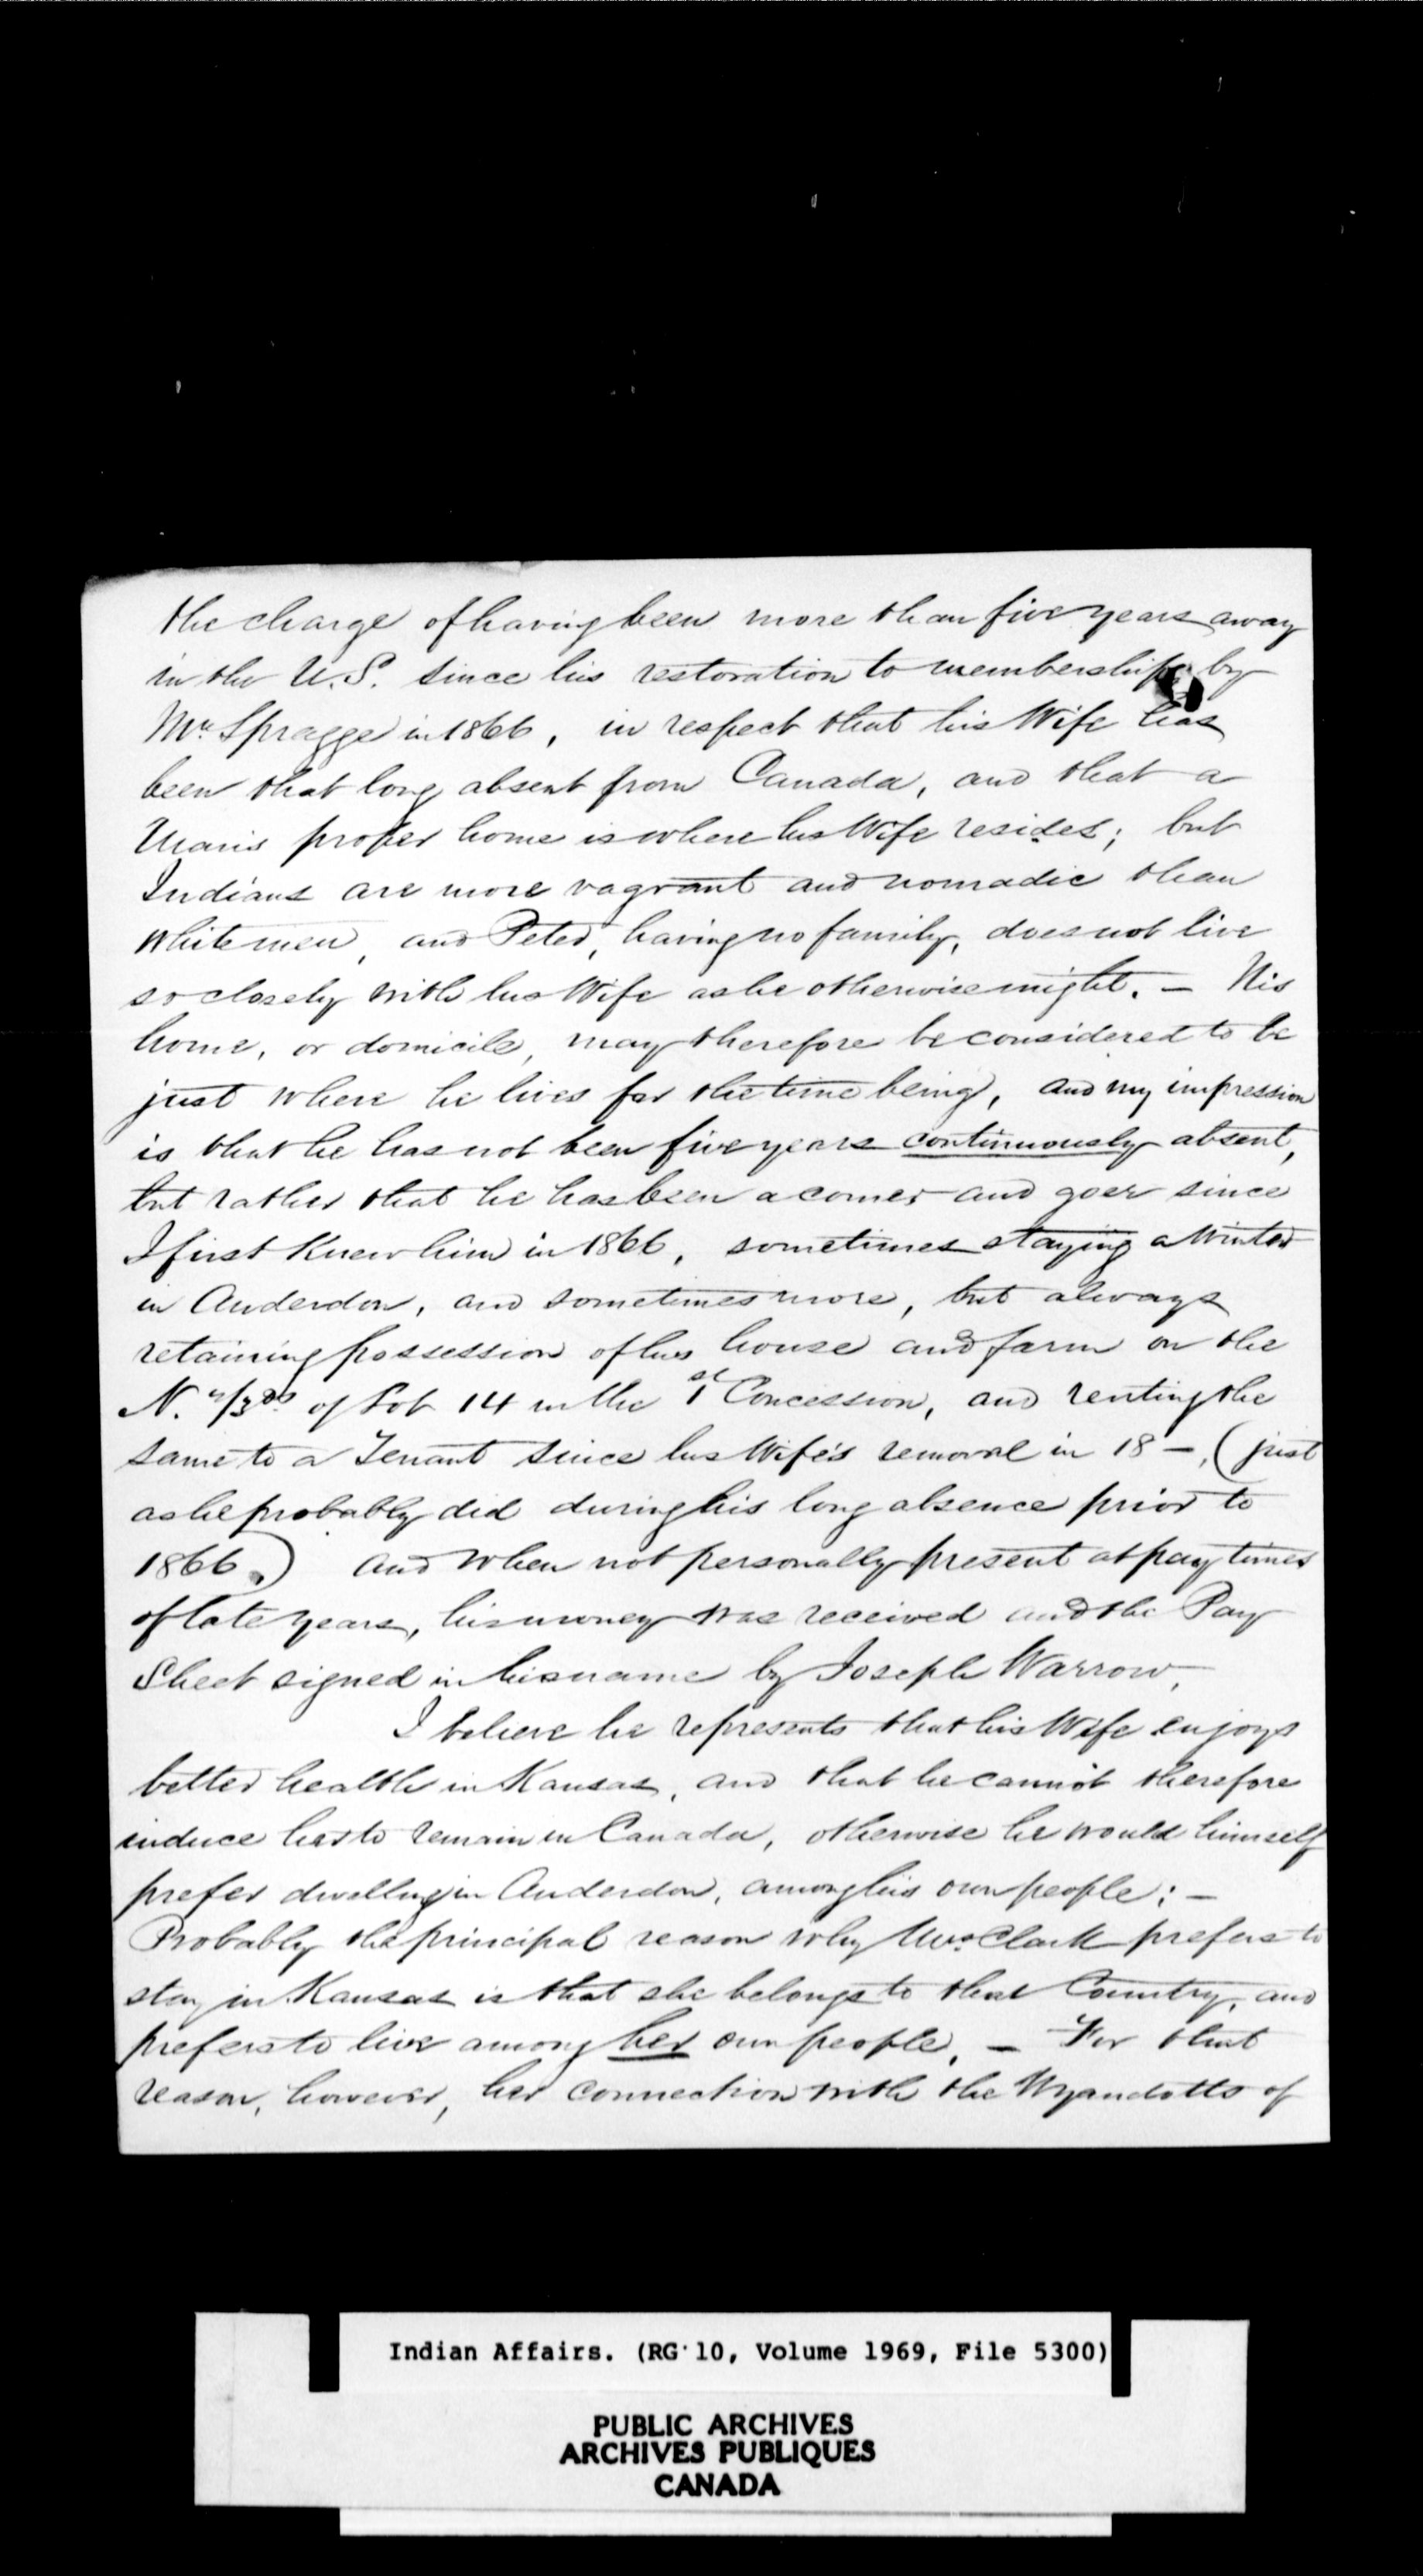 the charge of having been more than five years away
in the U.S. since his restoration to membership by
Mr. Spragge in 1866, in respect that his Wife has
been that long absent from Canada, and that a
Man's proper home is where his Wife resides; but
Indians are more vagrant and nomadic than
white men, and Peter, having no family, does not live
so closely with his Wife as he otherwise might. — His
home, or domicile, may therefore be considered to be
just where he lives for the time being, and my impression
is that he has not been five years continuously absent,
but rather that he has been a comer and goer since
I first Knew him in 1866, sometimes staying a Winter
in Anderdon, and sometimes more, but always
retaining possession of his house and farm on the
N. 2/3ds of Lot 14 in the 1st Concession, and renting the
same to a Tenant since his Wife's removal in 18—, (just
as he probably did during his long absence prior to
1866.) and when not personally present at pay times
of late years, his money was received and the Pay
Sheet signed in his name by Joseph Warrow.
I believe he represents that his Wife enjoys
better health in Kansas, and that he cannot therefore
induce her to remain in Canada, otherwise he would himself
prefer dwelling in Anderdon, among his own people; —
Probably the principal reason why Mrs. Clark prefers to
stay in Kansas is that she belongs to that Country, and
prefers to live among her own people. — For that
reason, however, her connection with the Wyandotts of
Indian Affairs. (RG 10, Volume 1969, File 5300)
PUBLIC ARCHIVES
ARCHIVES PUBLIQUES
CANADA